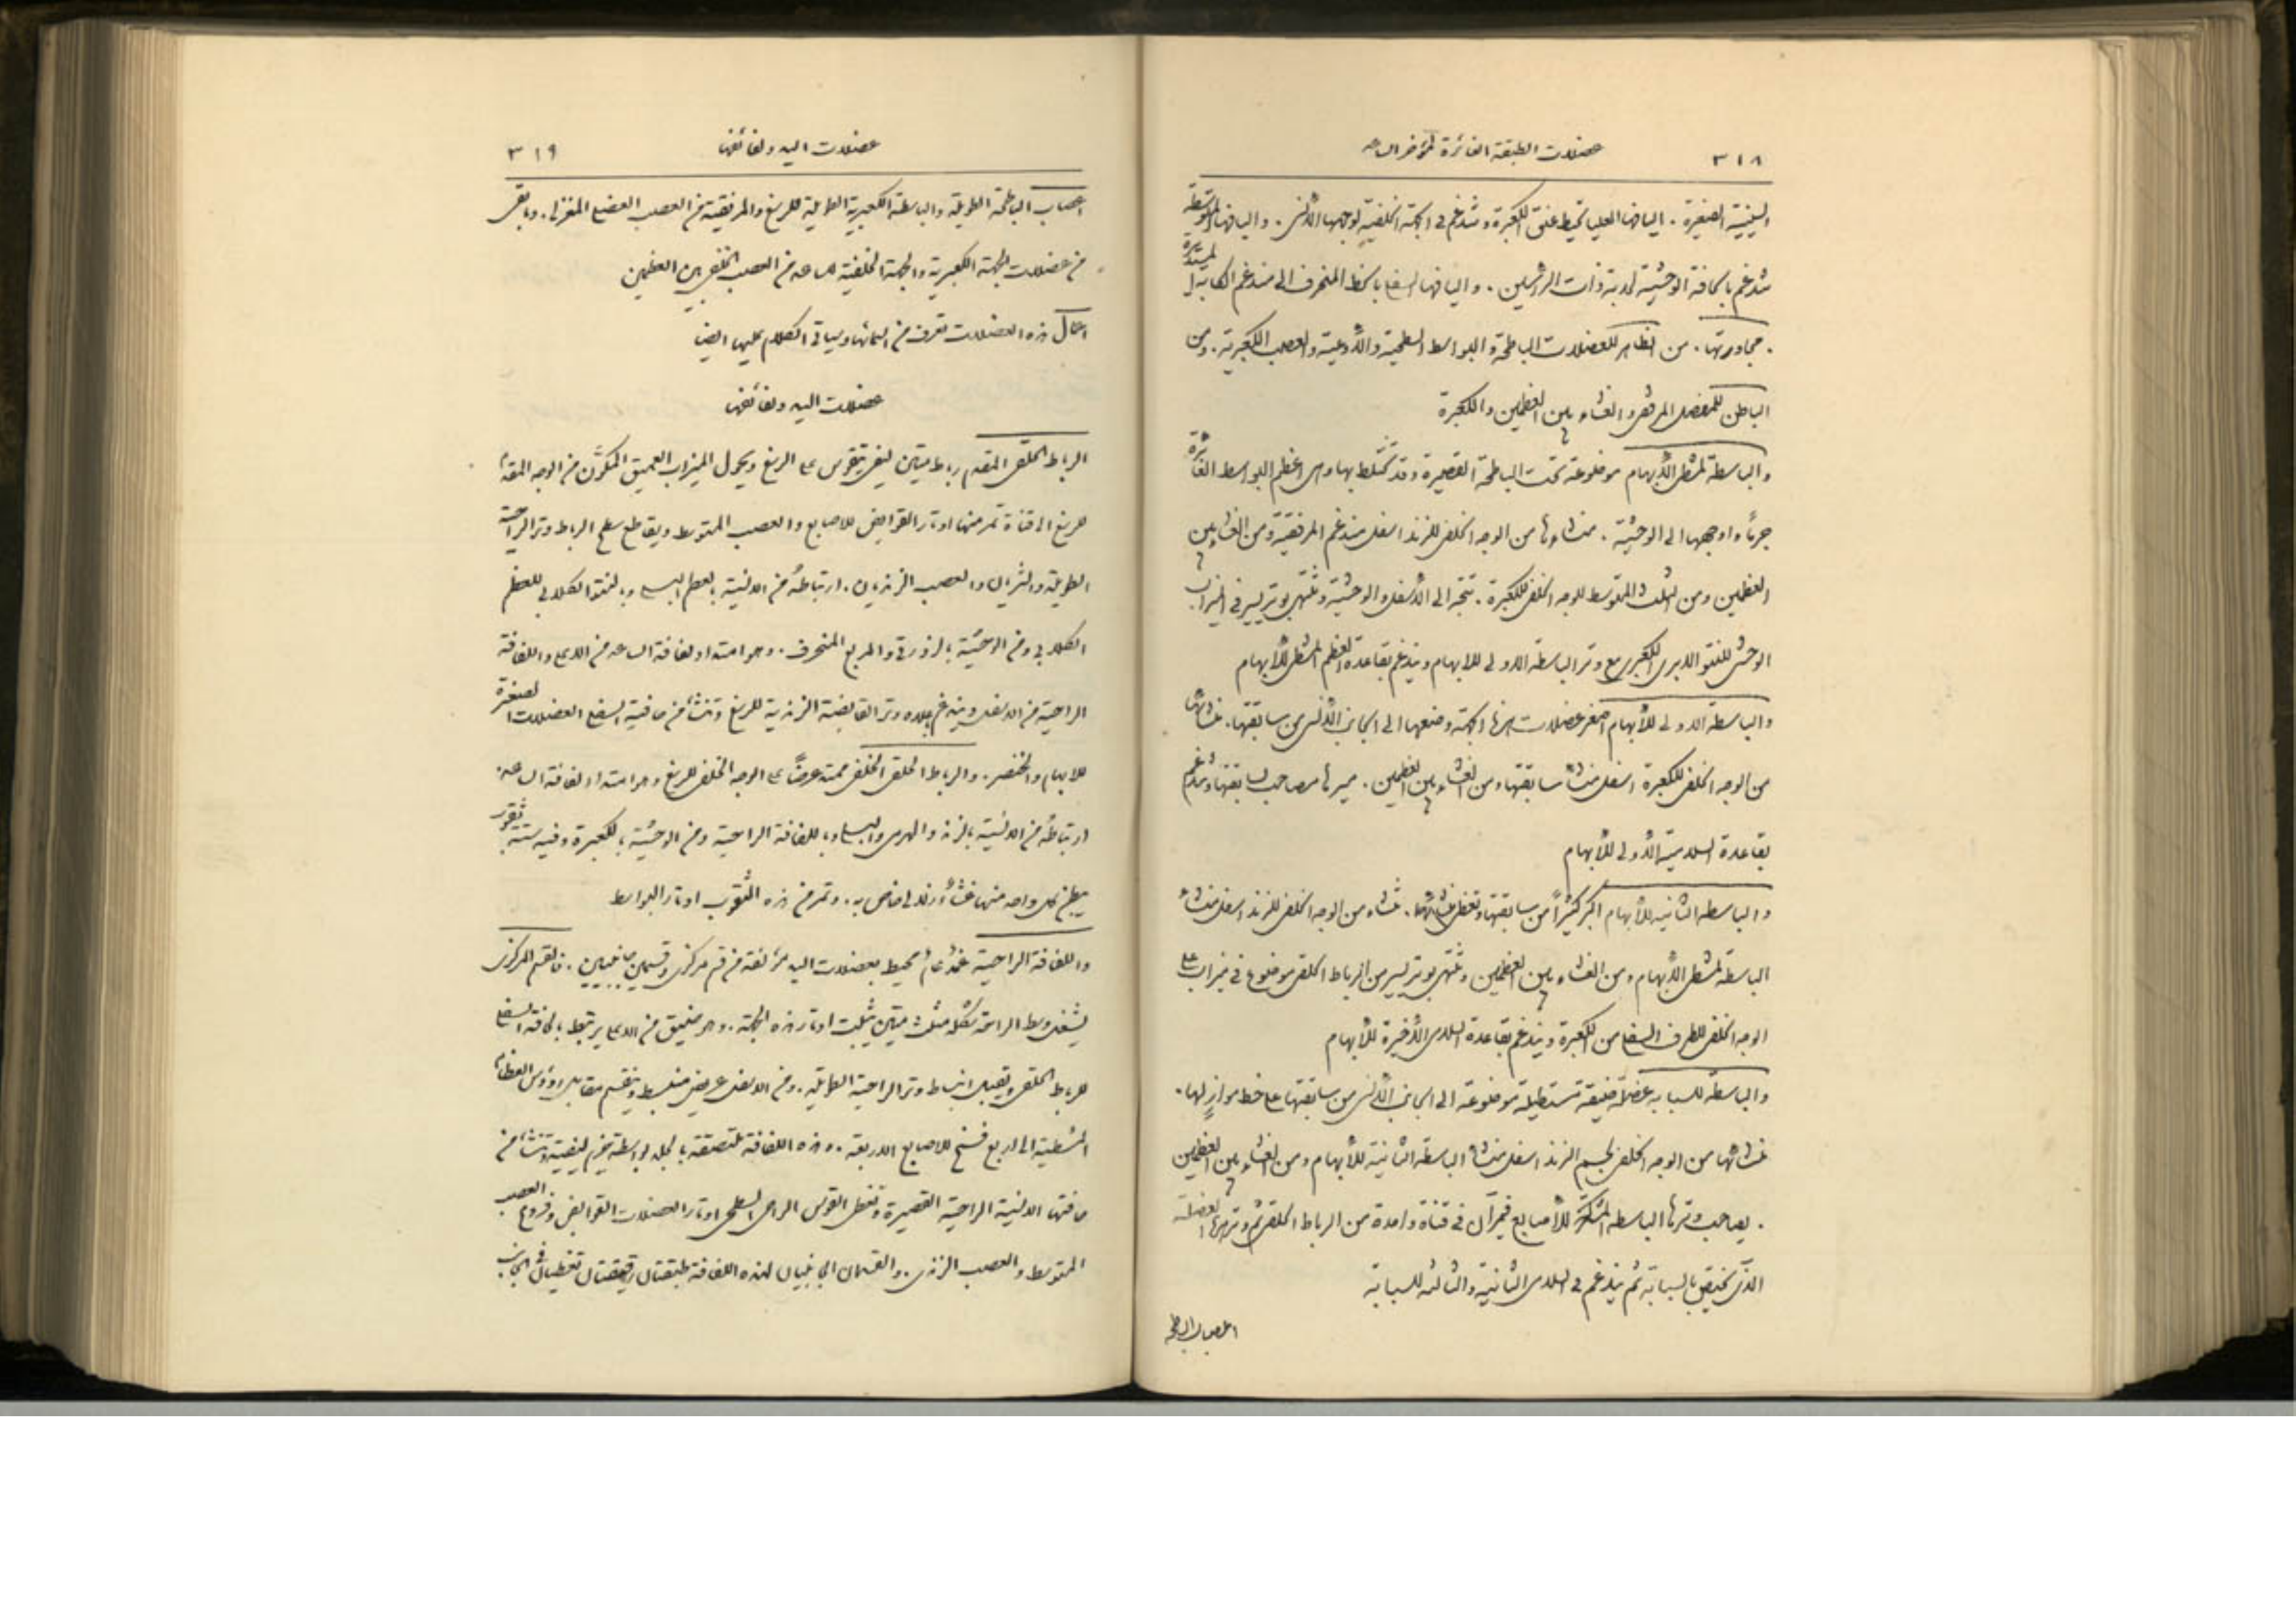 ٣١٨
عضلات الطبقة الغائرة لمؤخر الساعد
السينية الصغيرة. اليافها العليا تحيط عنق الكعبرة وتندغم في الجهة الخلفية لوجهها الأنسي. واليافها المتوسطة
تندغم بالحافة الوحشية لحدبة ذات الراسين. واليافها السفلى بالخط المنحرف الى مندغم الكابة المستديرة
. مجاورتها. من الظاهر للعضلات الباطحة والبواسط السطحية والأوعية والعصب الكعبرية. ومن
الباطن للمفصل المرفقي والغشاء بين العظمين والكعبرة
والباسطة لمشط الأبهام موضوعة تحت الباطحة القصيرة وقد تختلط بها وهي اعظم البواسط الغائرة
جرماً واوجهها الى الوحشية. منشاؤها من الوجه الخلفي للزند اسفل مندغم المرفقية ومن الغشاء بين
العظمين ومن الثلث المتوسط للوجه الخلفي للكعبرة. تتجه الى الأسفل والوحشية وتنتهي بوتر يسير في الميزاب
الوحشي للنتو الابري الكعبري مع وتر الباسطة الاولى للابهام ويندغم بقاعدة العظم المشطي للأبهام
والباسطة الاولى للأبهام اصغر عضلات هذه الجهة وضعها الى الجانب الأنسي من سابقتها. منشاؤها
من الوجه الخلفي للكعبرة اسفل منشاء سابقتها ومن الغشاء بين العظمين. مسيرها مصاحب لسابقتها وتندغم
بقاعدة السلامية الأولى للأبهام
والباسطة الثانية للأبهام اكبر كثيراً من سابقتها وتغطي منشائها. منشاه من الوجه الخلفي للزند اسفل منشاء
الباسطة لمشط الأبهام ومن الغشاء بين العظمين وتنتهي بوتر يسير من الرباط الحلقي موضوع في ميزاب على
الوجه الخلفي للطرف السفلي من الكعبرة ويندغم بقاعدة السلامى الأخيرة للأبهام
والباسطة للسبابه عضلة ضيقة مستطيلة موضوعة الى الجانب الأنسي من سابقتها على خط موازٍ لها.
منشائها من الوجه الخلفي لجسم الزند اسفل منشاء الباسطة الثانية للأبهام ومن الغشاء بين العظمين
. يصاحب وترها الباسطة المشتركة للأصابع فيمرّان في قناة واحدة من الرباط الحلقي ثم وتر هذه العضلة
الذي يختص بالسبابة ثم يندغم في السلامى الثانية والثالثه للسبابة
اعصاب الباطحة
٣١٩
عضلات اليد ولفائفها
اعصاب الباطحة الطويلة والباسطة الكعبرية الطويلة للرسغ والمرفقية من العصب العضلي المغزلي. وما بقى
من عضلات الجهة الكعبرية والجهة الخلفية للساعد من العصب الخلفي بين العظمين
اعمال هذه العضلات تعرف من اسمائها وسياتي الكلام عليها ايضاً
عضلات اليد ولفائفها
الرباط الحلقي المقدم رباط متين ليفي يتقوس على الرسغ ويحول الميزاب العميق المتكوّن من الوجه المقدم
للرسغ الى قناة تمر منها اوتار القوابض للاصابع والعصب المتوسط ويقاطع سطح الرباط وتر الراحية
الطويلة والشريان والعصب الزنديان. ارتباطهُ من الانسية بالعظم البسلي وبالنتو الكلابي للعظم
الكلابي ومن الوحشية بالزورقي والمربع المنحرف. وهو امتداد لفافة الساعد من الاعلى واللفافة
الراحية من الاسفل ويندغم بجلده وتر القابضة الزندية للرسغ وتنشأ من حافته السفلى العضلات الصغيرة
للابهام والخنصر. والرباط الحلقي الخلفي ممتد عرضاً على الوجه الخلفي للرسغ وهو امتداد لفافة الساعد.
ارتباطهُ من الانسية بالزند والهرمي والبسلي وباللفافة الراحية ومن الوحشية بالكعبرة وفيه ستة ثقوب
يبطن كل واحد منها غشأٌ زلالي خاص به. وتمر من هذه الثقوب اوتار البواسط
واللفافة الراحية غمد عام محيط بعضلات اليد مؤلفة من قسم مركزي وقسمين جانبيين. فالقسم المركزي
يشغل وسط الراحة شكله مثلث متين يثبت اوتار هذه الجهة. وهو ضيق من الاعلى يرتبط بالحافة السفلى
للرباط الحلقي ويقبل انبساط وتر الراحية الطويلة. ومن الاسفل عريض منبسط وينقسم مقابل رؤوس العظام
المشطية الى اربع فسخ للاصابع الاربعة. وهذه اللفافة ملتصقة بالجلد بواسطة حزم ليفية وتنشأ من
حافتها الانسية الراحية القصيرة وتغطي القوس الراحي السطحي واوتار العضلات القوابض وفروع العصب
المتوسط والعصب الزندي. والقسمان الجانبيان لهذه اللفافة طبقتان رقيقتان تغطيان في الجانب